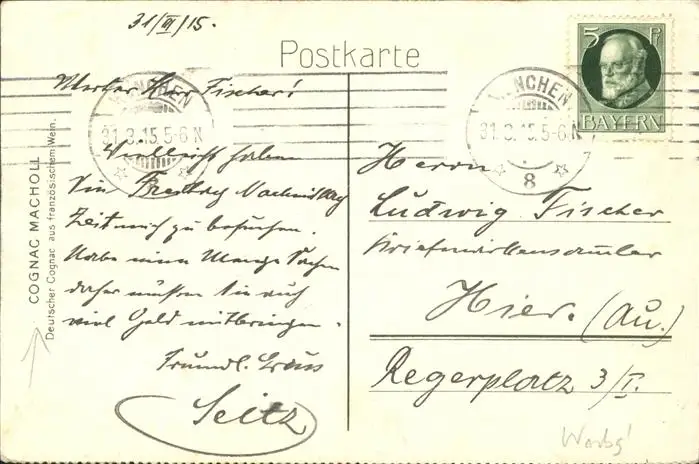 31/III/15.
Postkarte
5 Pf
BAYERN
MÜNCHEN
31.3.15.5-6N
8
MÜNCHEN
31.3.15.5-6N
8
Werter Herr Fischer!
Vielleicht haben
Sie Freitag Nachmittag
Zeit mich zu besuchen.
Habe eine Menge Sachen
daher müssen Sie auch
viel Geld mitbringen.
Freundl. Gruss
Seitz
Herrn
Ludwig Fischer
Briefmarkensammler
Hier. (Au.)
Regerplatz 3/I.
COGNAC MACHOLL
Deutscher Cognac aus französischem Wein.